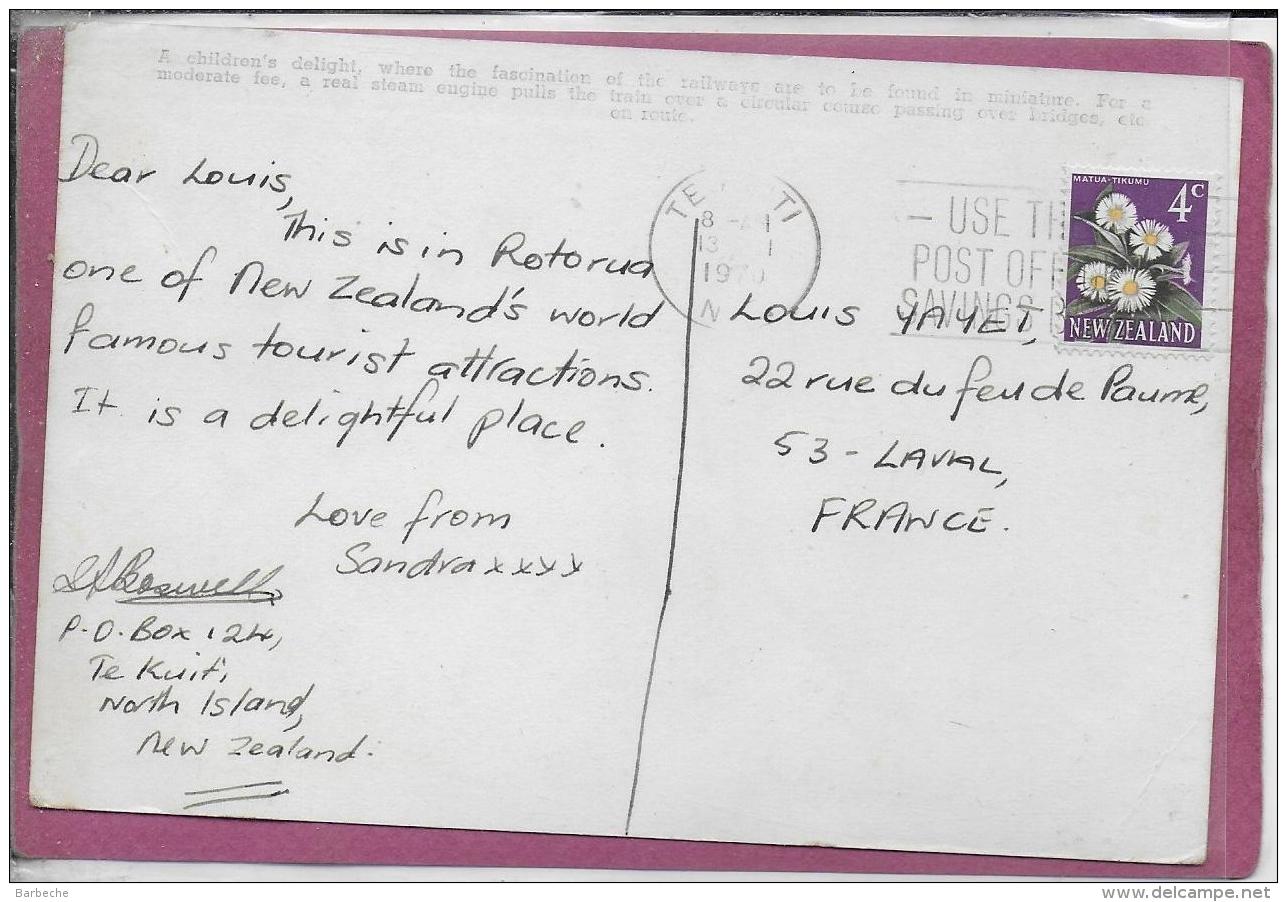 A children's delight, where the fascination of the railways are to be found in miniature. For a
moderate fee, a real steam engine pulls the train over a circular course passing over bridges, etc.
on route.
Dear Louis,
This is in Rotorua
one of New Zealand's world
famous tourist attractions.
It is a delightful place.
Love from
Sandra xxxx
P.O. Box 124,
Te Kuiti,
North Island,
New Zealand.
TE TI
8 -AM
13 I
1970
N
- USE TH
POST OFF
SAVINGS B
MATUA-TIKUMU
4c
NEW ZEALAND
Louis YAYET,
22 rue du feu de Paume,
53 - LAVAL,
FRANCE.
Barbeche
delcampe.net